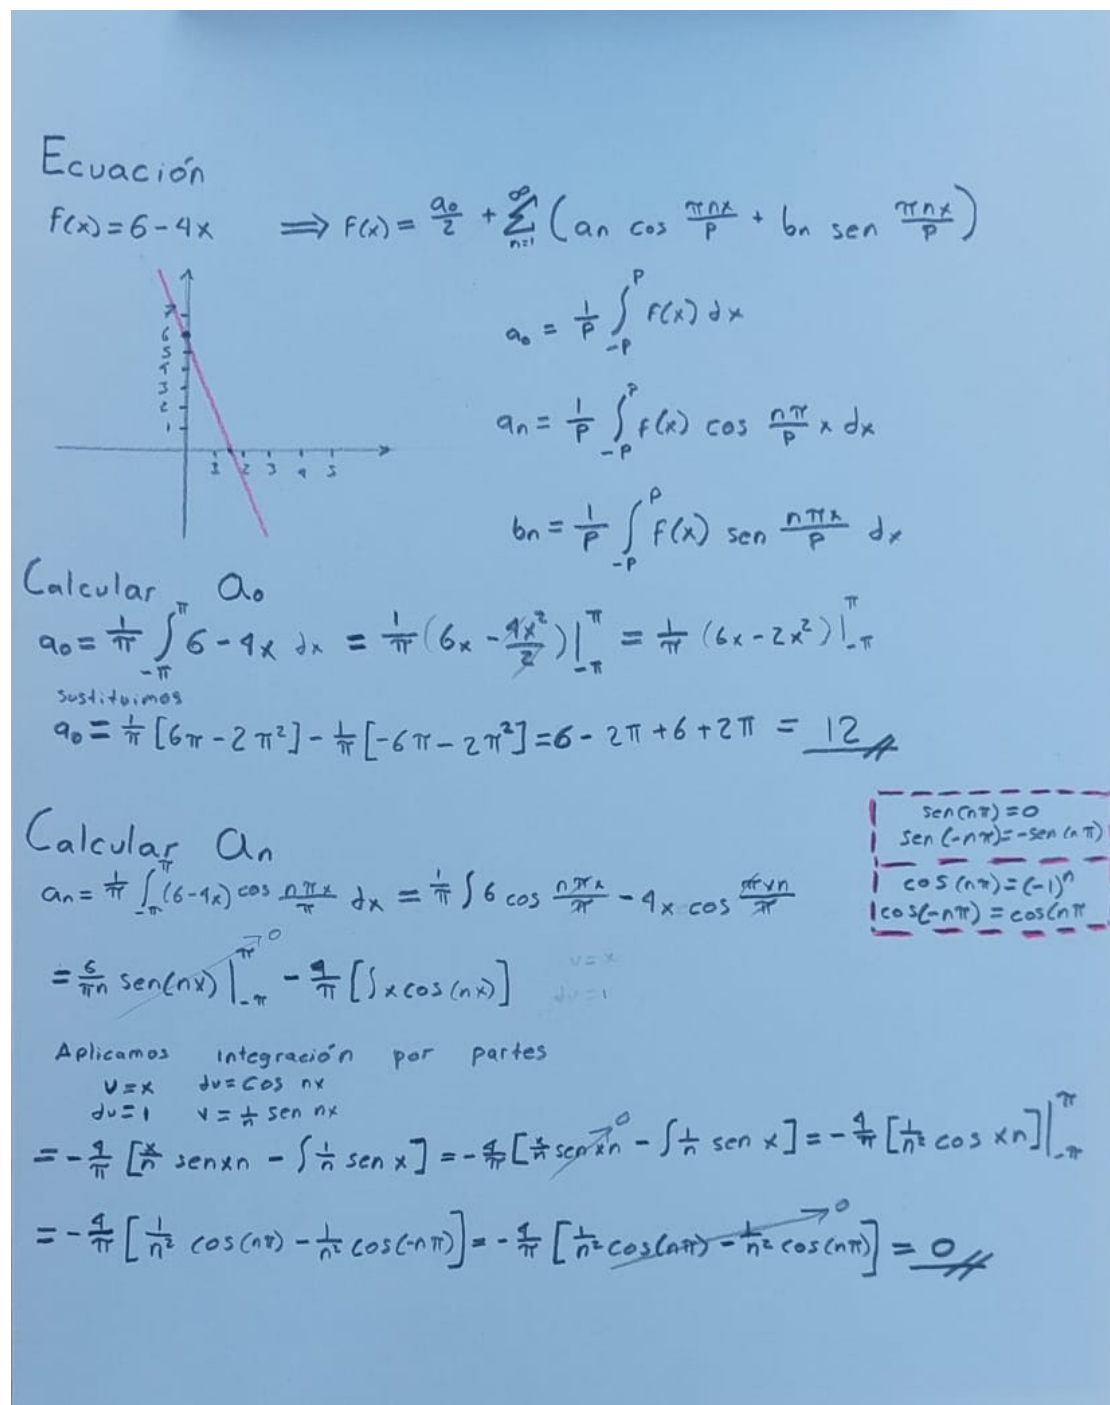 Ecuación
f(x) = 6 - 4x ⟹ f(x) = a₀/2 + ∑_{n=1}^{∞} (an cos πnx/P + bn sen πnx/P)
7
6
5
4
3
2
1
1 2 3 4 5
a₀ = 1/P ∫_{-P}^{P} f(x) dx
an = 1/P ∫_{-P}^{P} f(x) cos nπ/P x dx
bn = 1/P ∫_{-P}^{P} f(x) sen nπx/P dx
Calcular a₀
a₀ = 1/π ∫_{-π}^{π} 6 - 4x dx = 1/π (6x - 4x²/2)|_{-π}^{π} = 1/π (6x - 2x²)|_{-π}^{π}
sustituimos
a₀ = 1/π [6π - 2π²] - 1/π [-6π - 2π²] = 6 - 2π + 6 + 2π = 12
Calcular an
sen(nπ) = 0
sen(-nπ) = -sen(nπ)
cos(nπ) = (-1)ⁿ
cos(-nπ) = cos(nπ
an = 1/π ∫_{-π}^{π} (6-4x) cos nπx/π dx = 1/π ∫ 6 cos nπx/π - 4x cos πxn/π
= 6/πn sen(nx)|_{-π}^{π} → 0 - 4/π [∫x cos(nx)]
u = x
du = 1
Aplicamos integración por partes
u = x dv = cos nx
du = 1 v = 1/n sen nx
= -4/π [x/n sen xn - ∫ 1/n sen x] = -4/π [x/n sen xn → 0 - ∫ 1/n sen x] = -4/π [1/n² cos xn]|_{-π}^{π}
= -4/π [1/n² cos(nπ) - 1/n² cos(-nπ)] = -4/π [1/n² cos(nπ) - 1/n² cos(nπ)] → 0 = 0